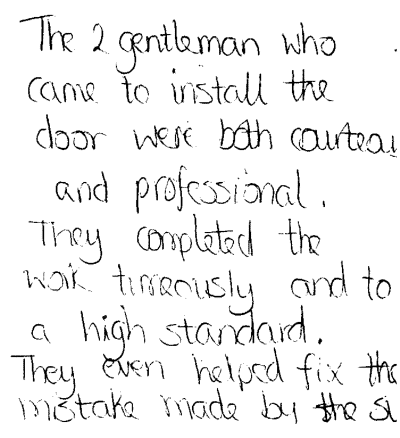 The 2 gentleman who
came to install the
door were both courteou
and professional.
They completed the
work timeously and to
a high standard.
They even helped fix the
mistake made by the